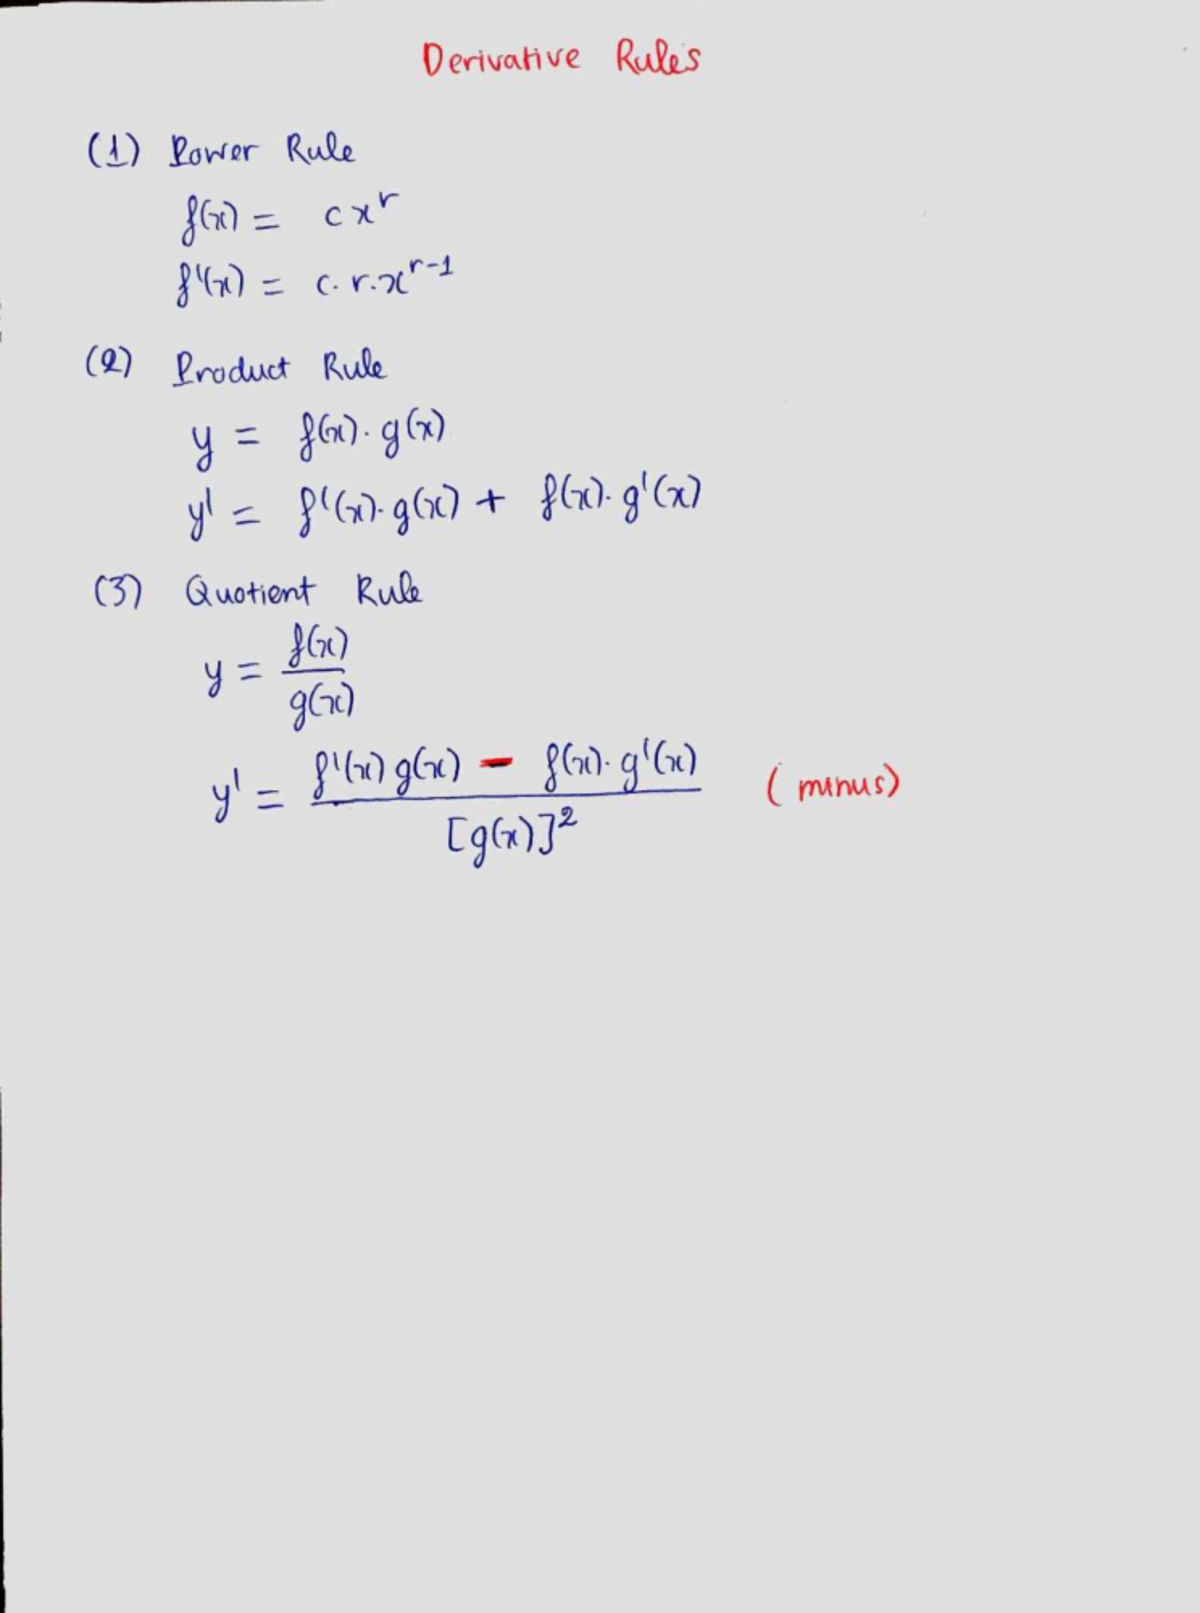 Derivative Rules
(1) Power Rule
f(x) = cx^r
f'(x) = c.r.x^{r-1}
(2) Product Rule
y = f(x).g(x)
y' = f'(x).g(x) + f(x).g'(x)
(3) Quotient Rule
y = \frac{f(x)}{g(x)}
y' = \frac{f'(x)g(x) - f(x).g'(x)}{[g(x)]^2} (minus)